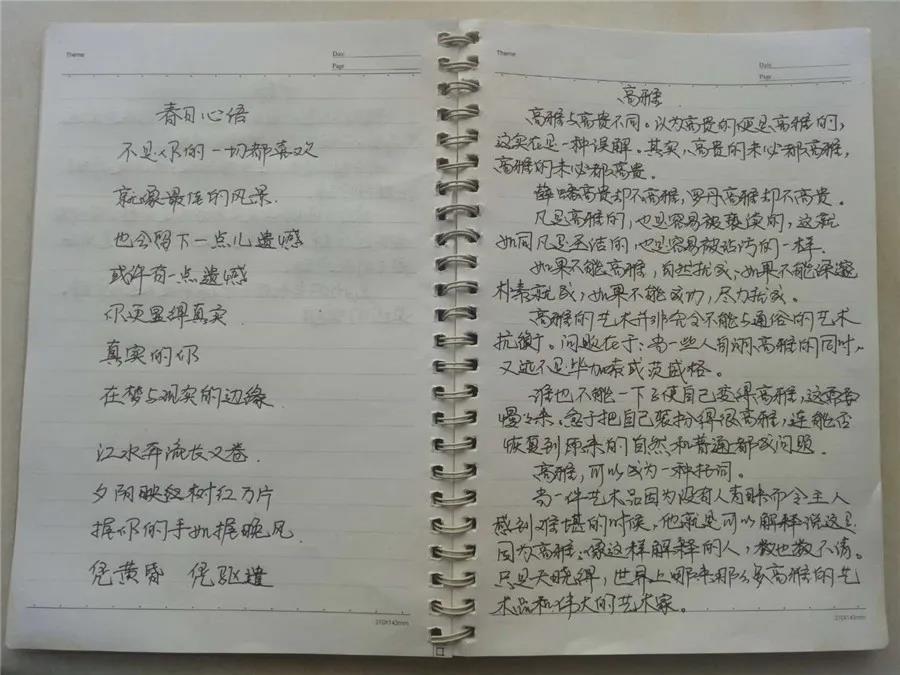 Theme
Date
Page
春日心语
不是你的一切都喜欢
就像最佳的风景
也会留下一点儿遗憾
或许有一点遗憾
你更显得真实
真实的你
在梦与现实的边缘
江水奔流长又卷
夕阳映红树红万片
握你的手如握晚风
凭黄昏 凭驱遣
210X143mm
Theme
Date
Page
高雅
高雅与高贵不同。以为高贵的便是高雅的,
这实在是一种误解。其实,高贵的未必都高雅,
高雅的未必都高贵。
薛蟠高贵却不高雅,罗丹高雅却不高贵。
凡是高雅的,也是容易被亵渎的,这就
如同凡是圣洁的,也是容易被玷污的一样。
如果不能高雅,自然就成;如果不能深邃
朴素就成,如果不能成功,尽力就成。
高雅的艺术并非完全不能与通俗的艺术
抗衡。问题在于:当一些人自诩高雅的同时,
又远不是毕加索或茨威格。
谁也不能一下子便自己变得高雅,这需要
慢慢来。急于把自己装扮得很高雅,连能否
恢复到原来的自然和普通都成问题
高雅,可以成为一种托词。
当一件艺术品因为没有人青睐而令主人
感到难堪的时候,他就是可以解释说这是
因为高雅;像这样解释的人,数也数不清。
只是天晓得,世界上哪来那么多高雅的艺
术品和伟大的艺术家。
210X143mm